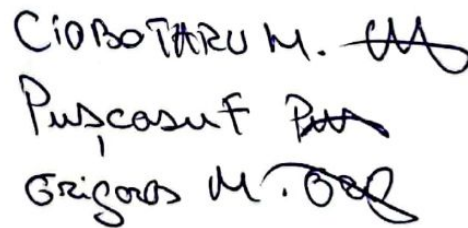 CIOBOTARU M.
Pușcasu F
Grigoras M.